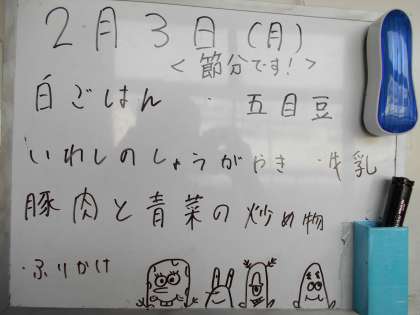 2月3日(月)
<節分です!>
白ごはん ・ 五目豆
いわしのしょうがやき ・牛乳
豚肉と青菜の炒め物
・ふりかけ